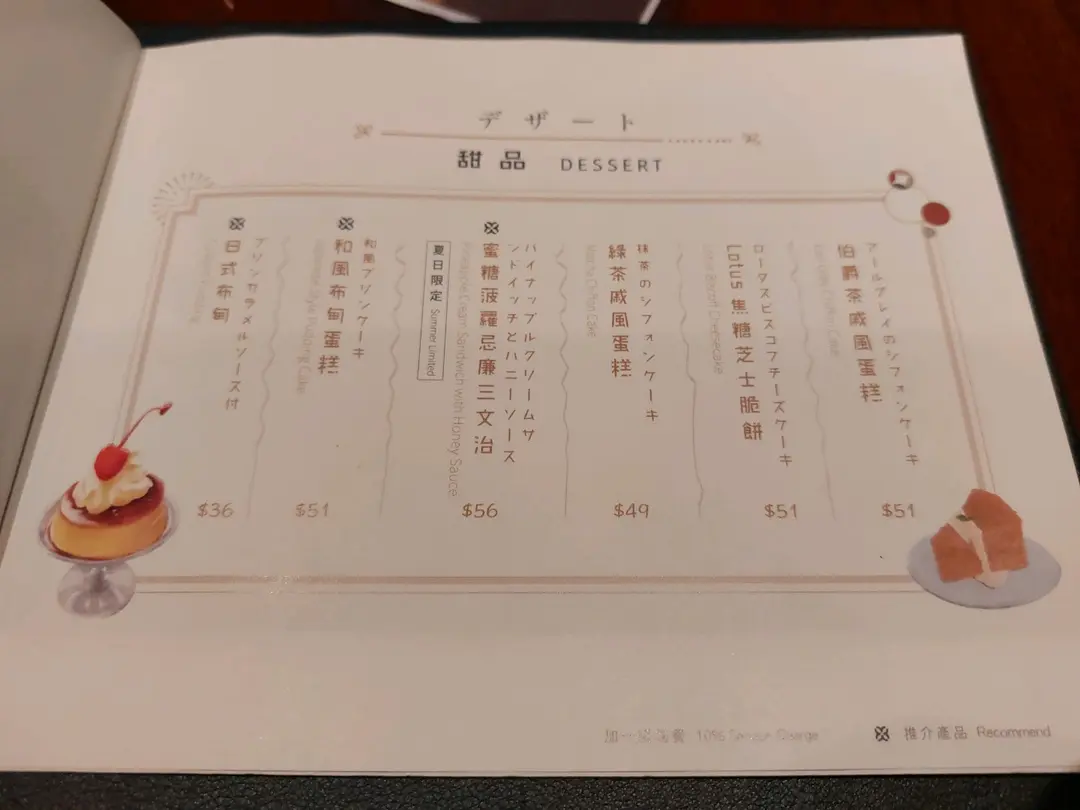 デザート
甜品 DESSERT
アールグレイのシフォンケーキ
伯爵茶戚風蛋糕
Earl Grey Chiffon Cake
$51
ロータスビスコフチーズケーキ
Lotus 焦糖芝士脆餅
Lotus Biscoff Cheesecake
$51
抹茶のシフォンケーキ
綠茶戚風蛋糕
Matcha Chiffon Cake
$49
パイナップルクリームサ
ンドイッチとハニーソース
蜜糖菠蘿忌廉三文治
Pineapple Cream Sandwich with Honey Sauce
夏日限定 Summer Limited
$56
和風プリンケーキ
和風布甸蛋糕
Japanese Style Pudding Cake
$51
プリンカラメルソース付
日式布甸
$36
加一服務費 10% Service Charge
推介產品 Recommend